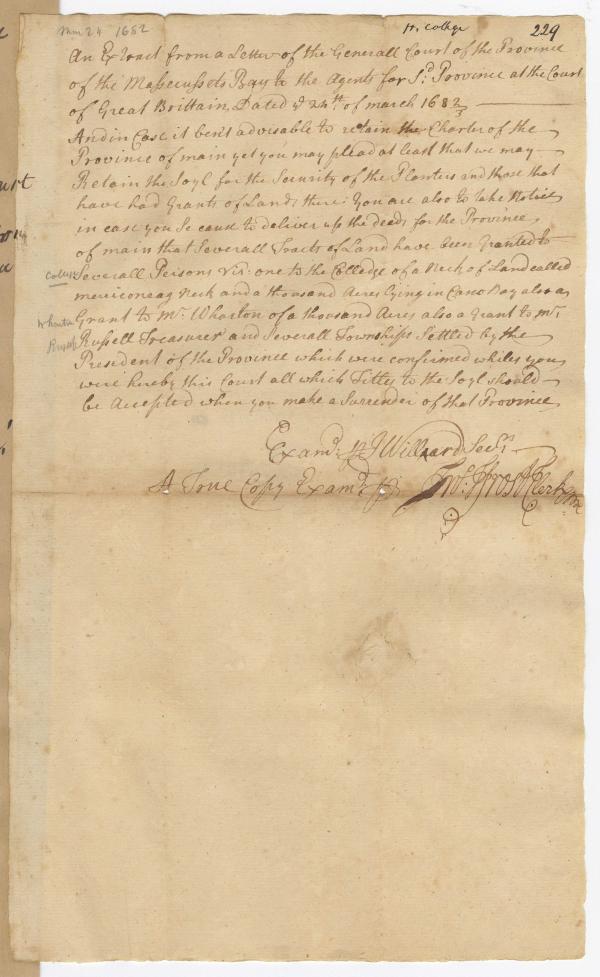 Mar 24 1682
H. College
229
An Extract from a Letter of the Generall Court of the Province
of the Massecussets Bay to the Agents for Sd. Province at the Court
of Great Brittain, Dated ye 24th. of march 1682/3
And in Case it ben't advisable to retain the Charter of the
Province of main yet you may plead at least that we may
Retain the Soyl for the Security of the Planters and those that
have had Grants of Lands there: You are also to take Notice
in case you Se cause to deliver up the deeds for the Province
of main that Severall Tracts of Land have been Granted to
College
Severall Persons Viz: one to the Colledge of a Neck of Land called
merriconeag Neck and a thousand Acres lying in Casco Bay also a
Wharton
Grant to Mr. Wharton of a thousand Acres also a Grant to mr.
Russell
Russell Treasurer and Severall Townships Settled by the
President of the Province which were confirmed whiles you
were here by this Court all which Titles to the Soyl should
be Accepted when you make a Surrender of that Province
Examd. p J Willard Secry.
A True Copy Examd. p. Jno. Frost Clerk